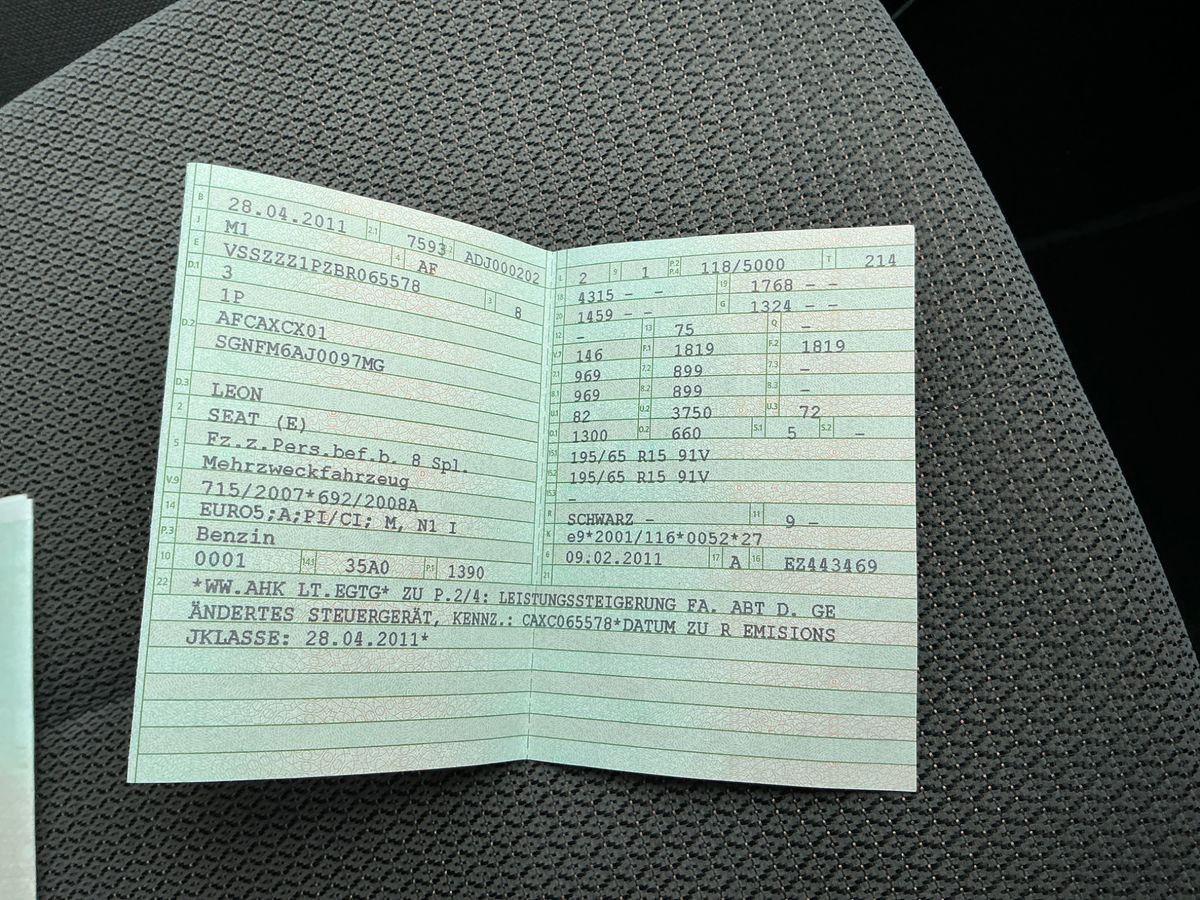 B 28.04.2011 2.1 7593 2.2 ADJ000202
J M1 4 AF
E VSSZZZ1PZBR065578 3 8
D.1 3
1P
D.2 AFCAXCX01
SGNFM6AJ0097MG
D.3 LEON
2 SEAT (E)
5 Fz.z.Pers.bef.b. 8 Spl.
Mehrzweckfahrzeug
V.9 715/2007*692/2008A
14 EURO5;A;PI/CI; M, N1 I
P.3 Benzin
10 0001 14.1 35A0 P.1 1390
L 2 9 1 P.2 P.4 118/5000 T 214
18 4315 - - 19 1768 - -
20 1459 - - G 1324 - -
12 - 13 75 Q -
V.7 146 F.1 1819 F.2 1819
7.1 969 7.2 899 7.3 -
8.1 969 8.2 899 8.3 -
U.1 82 U.2 3750 U.3 72
O.1 1300 O.2 660 S.1 5 S.2 -
15.1 195/65 R15 91V
15.2 195/65 R15 91V
15.3 -
R SCHWARZ - 11 9 -
K e9*2001/116*0052*27
6 09.02.2011 17 A 16 EZ443469
21
22 *WW.AHK LT.EGTG* ZU P.2/4: LEISTUNGSSTEIGERUNG FA. ABT D. GE
ÄNDERTES STEUERGERÄT, KENNZ.: CAXC065578*DATUM ZU R EMISIONS
JKLASSE: 28.04.2011*